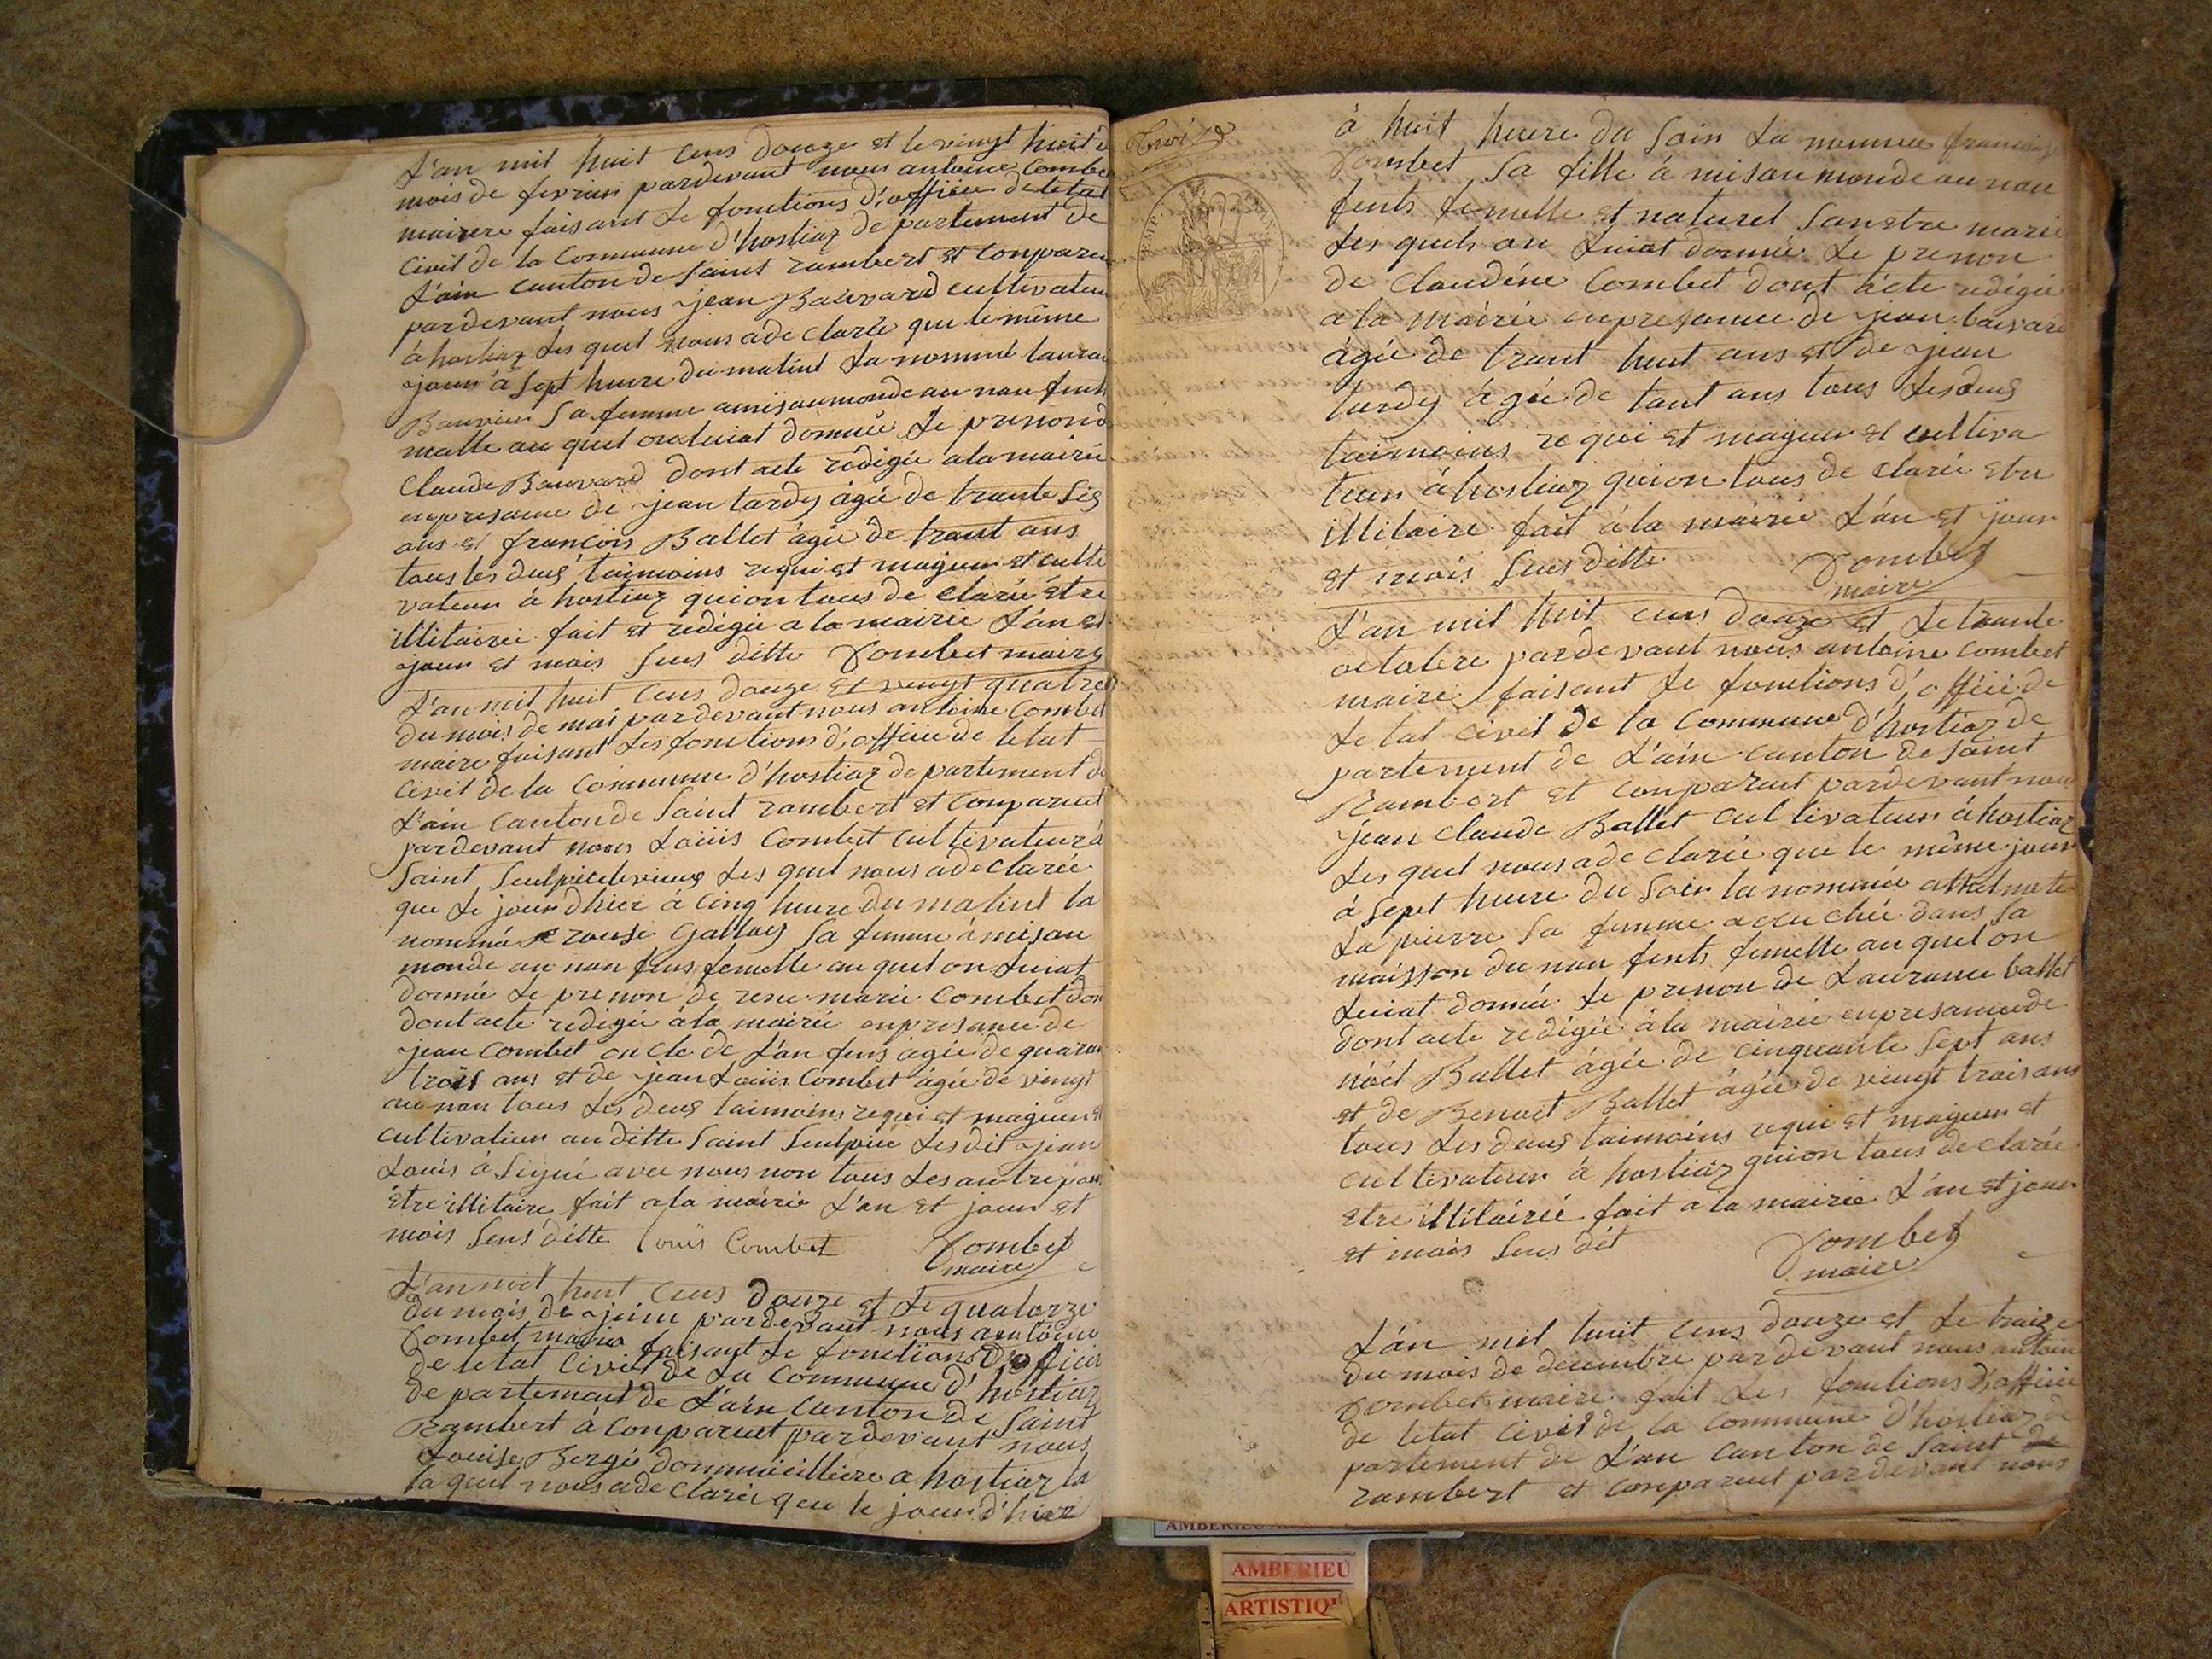 L'an mil huit cens douze et le vingt huit
mois de fevrier pardevant nous antoine Combe
mairere faisant le fonctions d'officier de letat
Civil de la Commune d'hostiaz departement de
L'ain canton de Saint rambert et Conparu
pardevant nous jean Bauvard cultivateur
à hostiaz les quel nous adeclarée que le même
jour à Sept heure du matint la nommé
Sa femme amisaumonde au nan fent
malle au quel onluiat donnée Le prenond
Claude Bauvard dont acte redigée alamairie
enpresance de jean tardy âgée de trante Sis
ans et françois Ballet âgée de trant ans
tous les deus taimoins requi et majeur et culti
vateur à hostiaz quion tous de clarée être
illitairée fait et redigée a la mairie L'an et
jour et mois Sus ditte Combet maire
L'an mil huit Cens douze et vingt quatre
du mois de mai pardevant nous antoine Combet
maire faisant Les fonctions d'officie de letat
Civil de la Commune d'hostiaz departement de
L'ain Canton de Saint rambert et Conparuet
pardevant nous Loüis Combet cultivateur à
Saint Sulpicelevieux Les quel nous adeclarée
que Le jour dhier à Cinq heure du matint la
nommée rouse Gallay Sa femme à mis au
monde au nan fens femelle au quel on Luiat
donnée Le prenon de rene marie Combet don
dont acte redigée à la mairie enpresance de
jean Combet oncle de L'an fens âgée de quaran
trois ans et de jean Loüis Combet âgée de vingt
au nan tous Les deus taimoins requi et majeur et
cultivateur au ditte Saint Sulpice Les dit jean
Louis à Signé avec nous non tous Les autre pour
être illitaire fait a la mairie L'an et jour et
mois Sus ditte Louis Combet Combet
maire
L'an mil huit Cens douze et Le quatorze
du mois de juin pardevant nous antoine
Combet maire faisant Le fonctions D'officie
de letat Civil de La Commune d'hostiaz
departement de L'ain Canton de Saint
Rambert à Conparuet pardevant nous
Louise Bergé dommicillière a hostiaz la
la quel nous adeclarée que le jour d'hier
à huit heure du Soir La nommee francoise
Combet Sa fille à mis au monde au nan
fents femelle et naturel Sanetre marie
Les quels on Luiat donnée Le prenon
de Claudéne Combet dont acte redigée
a la mairie enpresance de jean bauvard
âgée de trant huit ans et de jean
turdy âgée de tant ans tous Les deus
taimoins requi et majeur et cultiva
teur à hostiaz quion tous de clarée etre
illitaire fait à la mairie L'an et jour
et mois Sus ditte Combet
maire
L'an mil huit cens douze et Le trante
octobere pardevant nous antoine Combet
maire faisant Le fonctions d'officié de
Letat Civil de la Commune d'hostiaz de
partement de L'ain Canton de Saint
Rambert et Conparuet pardevant nous
jean Claude Ballet cultivateur à hostiaz
Les quel nous adeclarée que le même jour
à Sept heure du Soir la nommée
La pierre Sa femme accuchée dans Sa
maisson du nan fents femelle au quel on
Luiat donnée Le prenon de Laurance ballet
dont acte redigée à la mairie enpresancede
nöel Ballet âgée de cinquante Sept ans
et de Benoit Ballet âgée de vingt trois ans
tous Les deus taimoins requi et majeur et
cultivateur à hostiaz quion tous declarée
etre illitairée fait a la mairie L'an et jour
et mois Sus dit Combet
maire
L'an mil huit cens douze et Le traize
du mois de decembre pardevant nous antoin
Combet maire fait Les fonctions D'officie
de letat Civil de la Commune d'hostiaz de
partement de L'an Canton de Saint de
rambert et Conparuet pardevant nous
AMBERIEU
AMBERIEU
ARTISTIQ